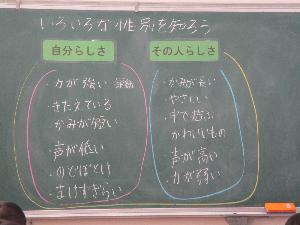 いろいろな性別を知ろう
自分らしさ
・力が強い
・きたえている
かみが短い
・声が低い
・のどぼとけ
・まけずぎらい
その人らしさ
・かみが長い
・やさしい
・
かわいいもの
声が高い
・力が弱い